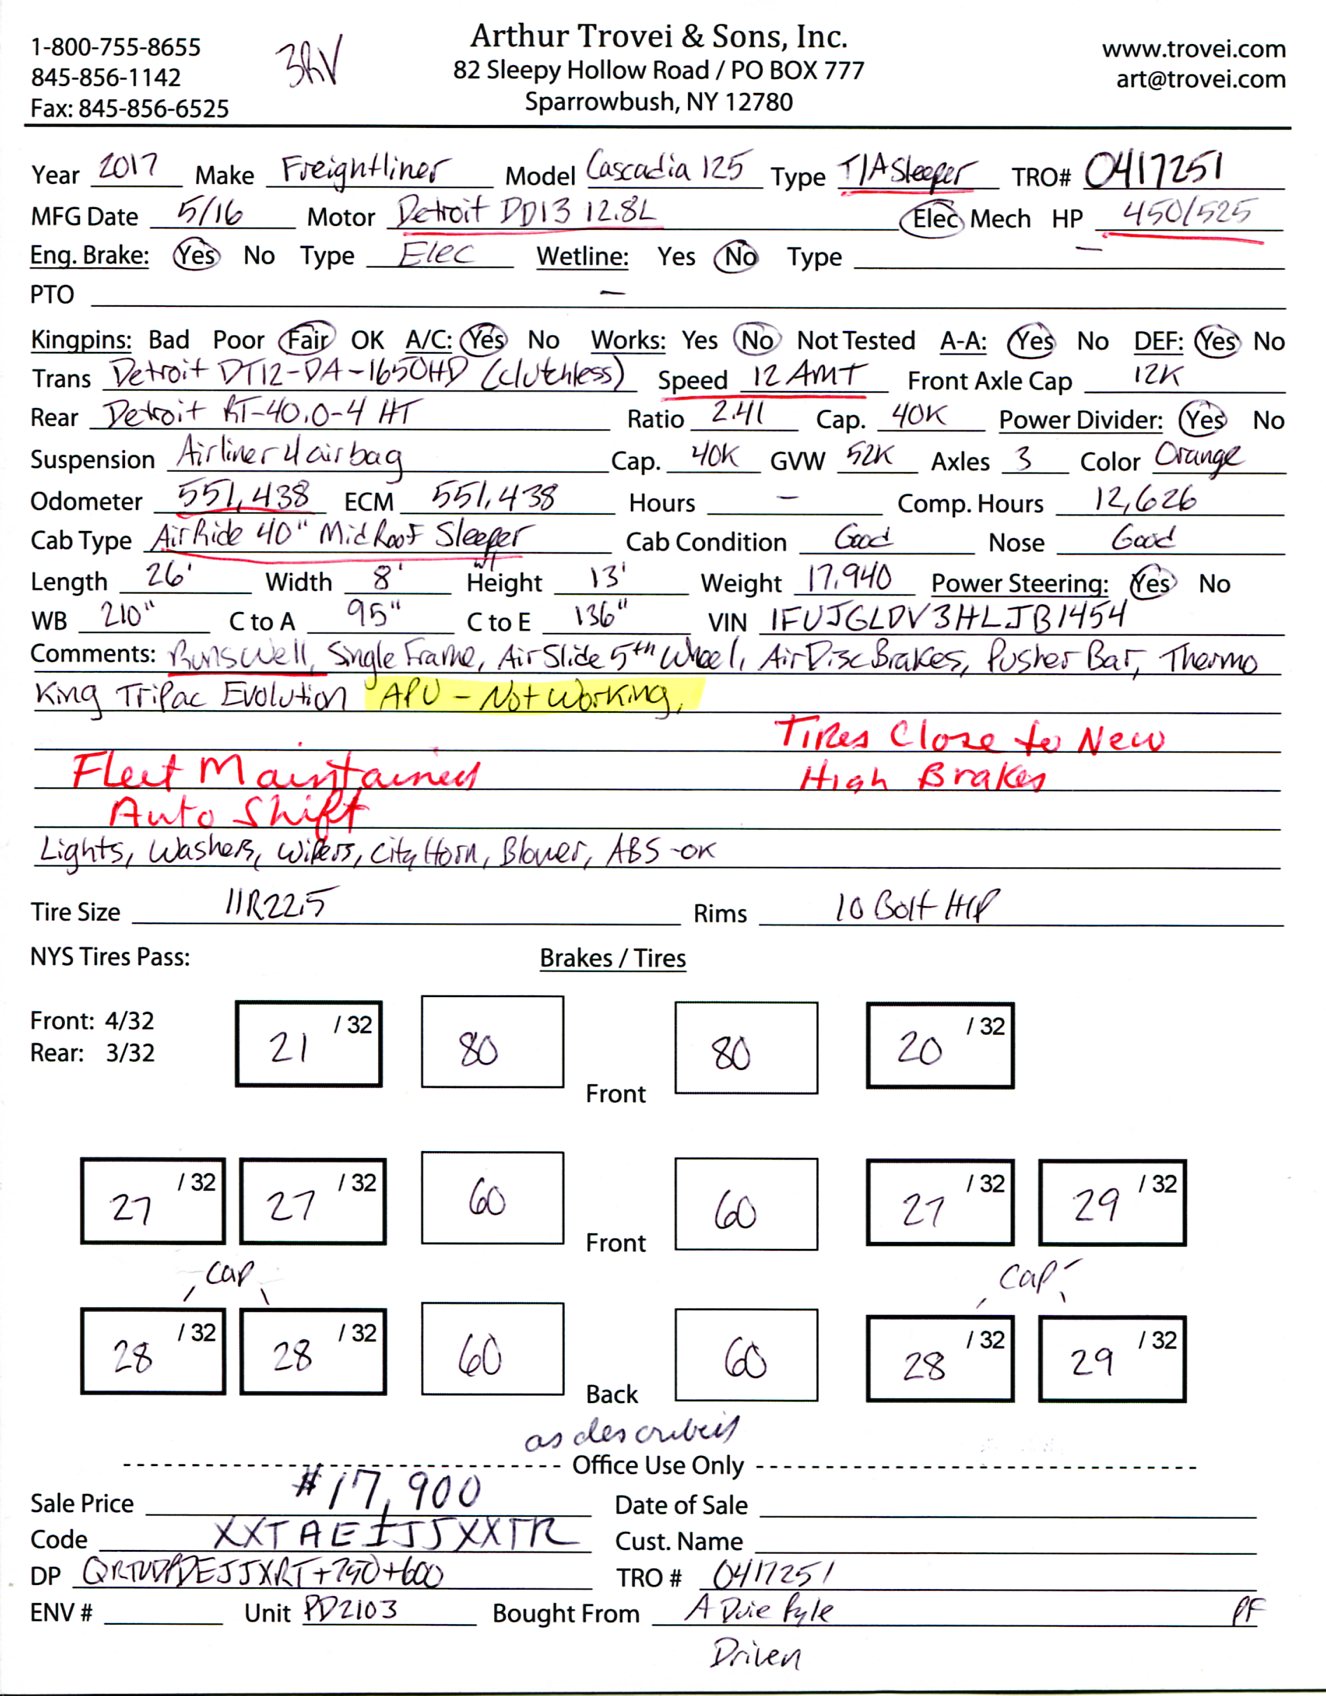 1-800-755-8655
845-856-1142
Fax: 845-856-6525
Arthur Trovei & Sons, Inc.
82 Sleepy Hollow Road / PO BOX 777
Sparrowbush, NY 12780
www.trovei.com
art@trovei.com
Year 2017 Make Freightliner Model Cascadia 125 Type T/A Sleeper TRO# 0417251
MFG Date 5/16 Motor Detroit DD13 12.8L Elec Mech HP 450/525
Eng. Brake: Yes No Type Elec Wetline: Yes No Type —
PTO —
Kingpins: Bad Poor Fair OK A/C: Yes No Works: Yes No Not Tested A-A: Yes No DEF: Yes No
Trans Detroit DT12-DA-1650HD (clutchless) Speed 12 AMT Front Axle Cap 12K
Rear Detroit RT-40.0-4 HT Ratio 2.41 Cap. 40K Power Divider: Yes No
Suspension Airliner 4 airbag Cap. 40K GVW 52K Axles 3 Color Orange
Odometer 551,438 ECM 551,438 Hours — Comp. Hours 12,626
Cab Type AirRide 40" MidRoof Sleeper Cab Condition Good Nose Good
Length 26' Width 8' Height 13' Weight 17,940 Power Steering: Yes No
WB 210" C to A 95" C to E 136" VIN 1FUJGLDV3HLJB1454
Comments: Runs Well, Single Frame, Air Slide 5th Wheel, Air Disc Brakes, Pusher Bar, Thermo
King TriPac Evolution APU - Not Working,
Tires Close to New
Fleet Maintained High Brakes
Auto Shift
Lights, Washers, Wipers, City Horn, Blower, ABS - OK
Tire Size 11R22.5 Rims 10 Bolt HP
NYS Tires Pass: Brakes / Tires
Front: 4/32
Rear: 3/32
21 /32 80 Front 80 20 /32
27 /32 27 /32 60 Front 60 27 /32 29 /32
Cap Cap
28 /32 28 /32 60 Back 60 28 /32 29 /32
as described
Office Use Only
Sale Price $17,900 Date of Sale
Code XXTAEIJJXXTR Cust. Name
DP +750+600 TRO # 0417251
ENV # Unit PD2103 Bought From A Duie Pyle PF
Driven